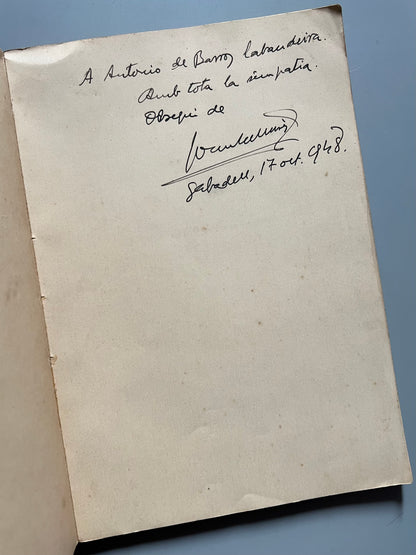 A Antonio de Barros Cabandeira.
Amb tota la simpatia.
Obsequi de
Sabadell, 17 oct. 1948.